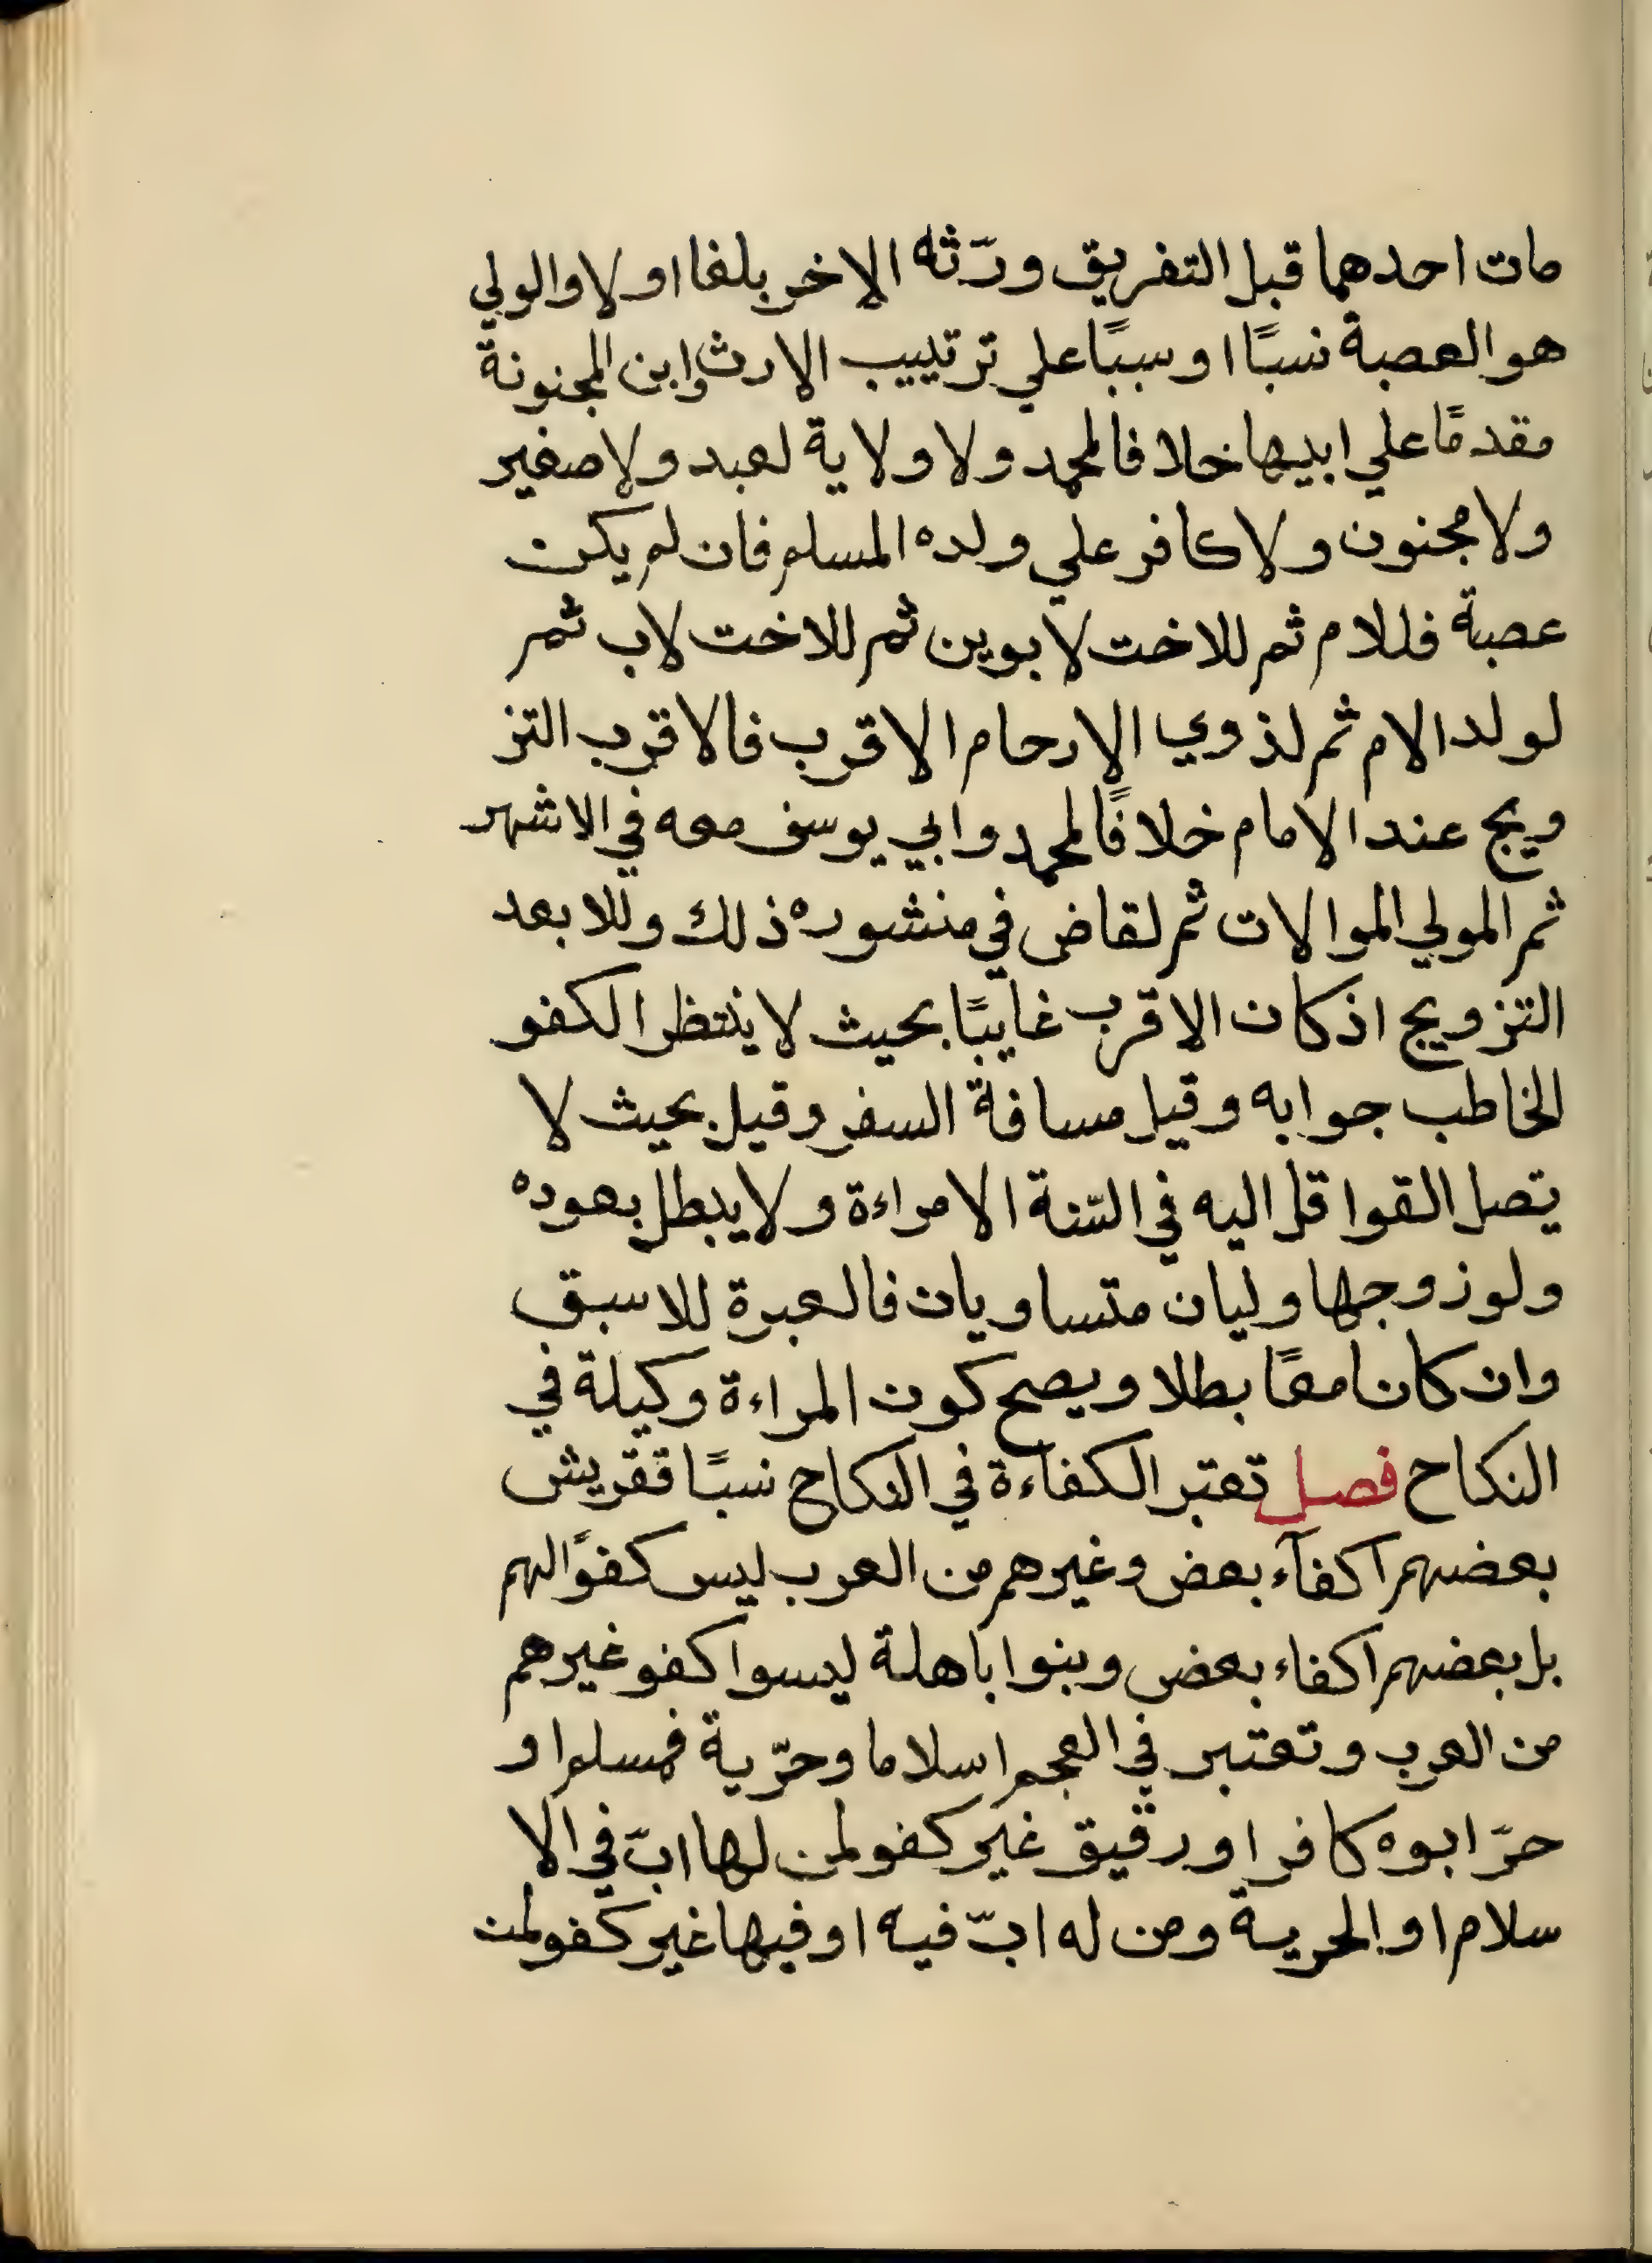 مات احدهما قبل التفريق ورّثه الاخر بلغا او لا والولي
هو العصبة نسبًا او سببًا علي ترتييب الارث وابن المجنونة
مقدمًا علي ابيها خلافا لمحمد ولا ولاية لعبد ولا صغير
ولا مجنون ولا كافر علي ولده المسلم فان لم يكن
عصبة فللام ثم للاخت لابوين ثم للاخت لاب ثم
لولد الام ثم لذوي الارحام الاقرب فالاقرب التز
ويج عند الامام خلافًا لمحمد وابي يوسف معه في الاشهر
ثم المولي الموالات ثم لقاض في منشوره ذلك وللابعد
التزويج اذ كان الاقرب غايبًا بحيث لا ينتظر الكفو
الخاطب جوابه وقيل مسافة السفر وقيل بحيث لا
يتصل القوافل اليه في السّنة الامراءة ولا يبطل بعوده
ولو زوجها وليان متساويان فالعبرة للاسبق
وان كانا معًا بطلا ويصح كون المراءة وكيلة في
النكاح فصل تعتبر الكفاءة في النكاح نسبًا فقريش
بعضهم اكفآء بعض وغيرهم من العرب ليس كفوًا لهم
بل بعضهم اكفاء بعض وبنوا باهلة ليسوا كفو غيرهم
من العرب وتعتبر في العجم اسلاما وحرّية فمسلم او
حرّ ابوه كافر او رقيق غير كفو لمن لها ابّ في الا
سلام او الحرية ومن له ابّ فيه او فيها غير كفو لمن